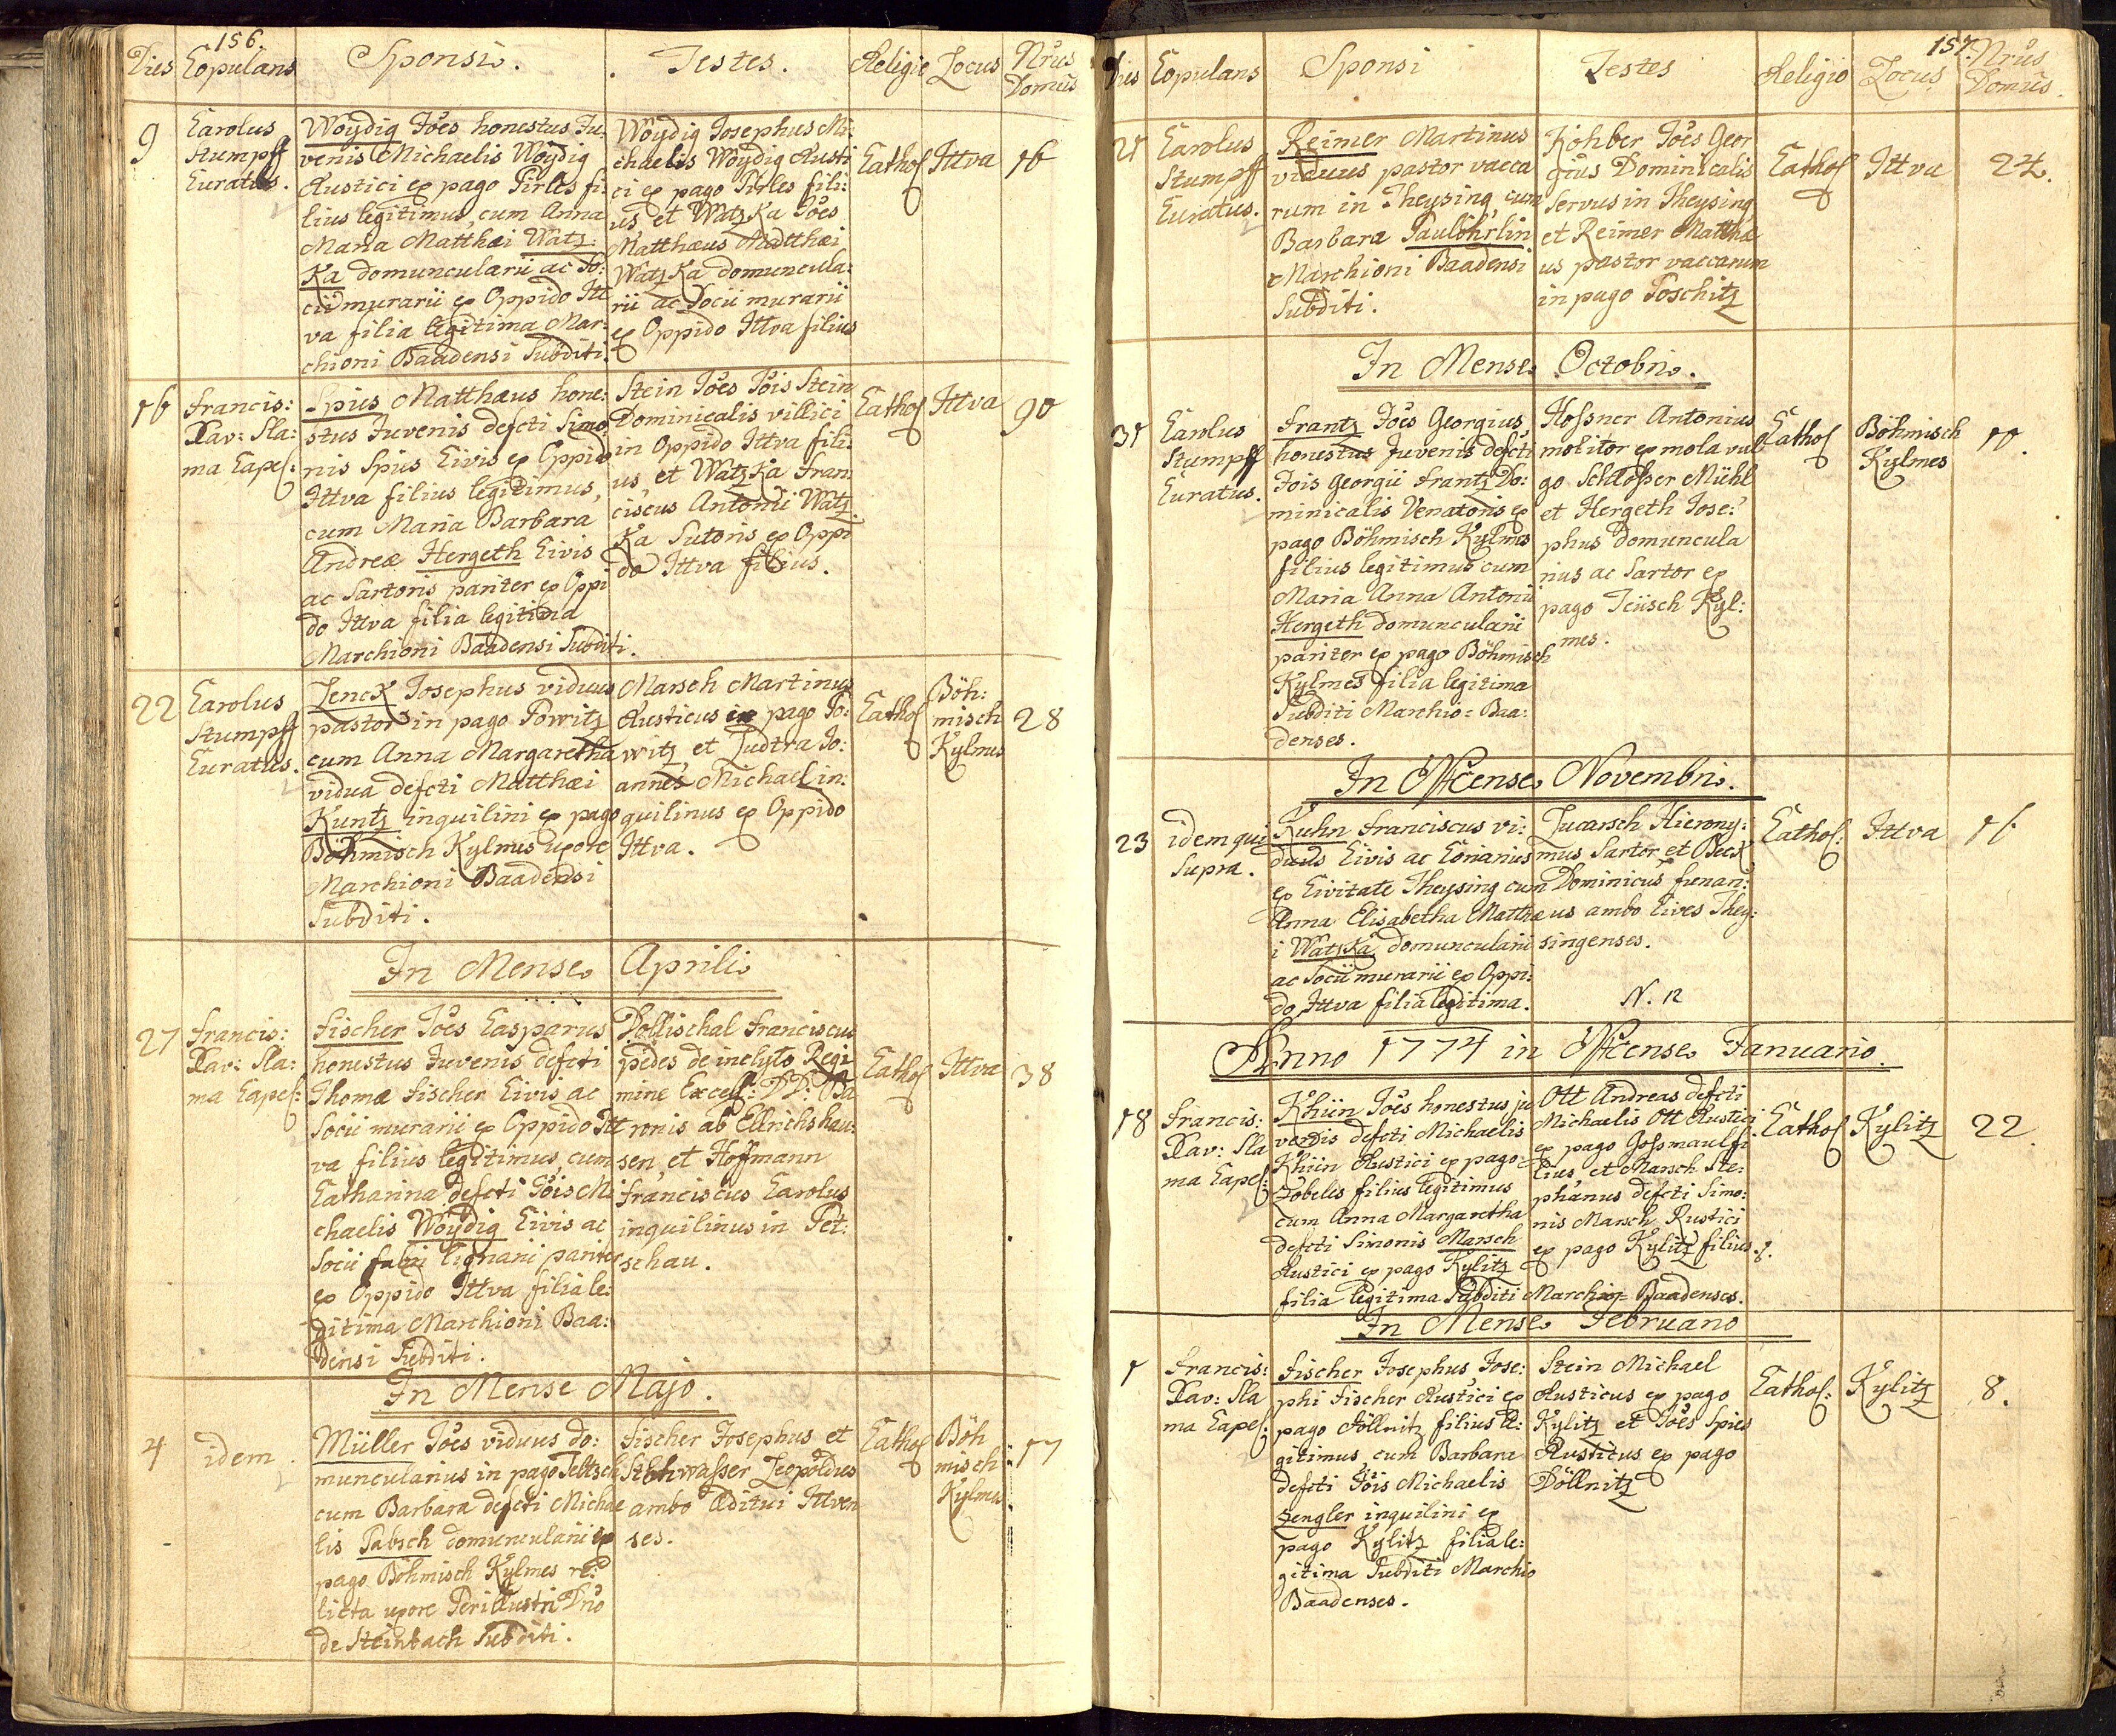 156.
Dies Copulans Sponsi. Testes. Religio Locus Nrus Domus
9
Carolus
Stumpff
Curatus.
Woydig Joes honestus Ju:
venis Michaelis Woydig
Rustici ex pago Pirles fi:
lius legitimus, cum Anna
Maria Matthæi Watz:
Ka domuncularii ac So:
cii murarii ex Oppido Itt
va filia legitima Mar:
chioni Baadensi Subditi.
Woydig Josephus Mi:
chaelis Woydig Rusti
ci ex pago Pirles fili:
us, et WatzKa Joes
Matthæus Matthæi
WatzKa domuncula:
rii ac Socii murarii
ex Oppido Ittva filius
Cathol
Ittva
16
16
Francis:
Xav: Sla:
ma Capel:
Spies Matthæus hone:
stus Juvenis defcti Simo
nis Spies Civis ex Oppido
Ittva filius legitimus,
cum Maria Barbara
Andreæ Hergeth Civis
ac Sartoris pariter ex Oppi
do Ittva filia legitima
Marchioni Baadensi Subditi.
Stein Joes Jois Stein
Dominicalis villici
in Oppido Ittva fili:
us, et WatzKa Fran:
ciscus Antonii Watz
Ka Sutoris ex Oppi
do Ittva filius.
Cathol
Ittva
90
22
Carolus
Stumpff
Curatus.
Zenck Josephus viduus
pastor in pago Powitz
cum Anna Margaretha
vidua defcti Matthæi
Kuntz inquilini ex pago
Böhmisch Kylmes uxore
Marchioni Baadensi
Subditi.
Marsch Martinus
Rusticus in pago Po:
witz, et Ludtra Jo:
annes Michael in:
quilinus ex Oppido
Ittva.
Cathol
Böh:
misch
Kylmes
28
In Mense Aprili
27
Francis:
Xav: Sla:
ma Capel:
Fischer Joes Casparus
honestus Juvenis defcti
Thomæ Fischer Civis ac
Socii murarii ex Oppido Itt
va filius legitimus, cum
Catharina defcti Jois Mi
chaelis Woydig Civis ac
Socii fabri lignarii pariter
ex Oppido Ittva filia le:
gitima Marchioni Baa:
densi Subditi.
Dollischal Franciscus
pedes de inclyto Regi
mine Excell: DD: Ba
ronis ab Ellrichshau:
sen, et Hoffmann
Franciscus Carolus
inquilinus in Pet:
schau.
Cathol
Ittva
38
In Mense Majo.
4
idem.
Müller Joes viduus do:
muncularius in pago Teltsch
cum Barbara defcti Michae
lis Pabsch domuncularii ex
pago Böhmisch Kylmes re:
licta uxore Perillustri Dno
de Steinbach Subditi.
Fischer Josephus et
Leopoldus
ambo Æditui Ittven
ses.
Cathol
Böh
misch
Kylmes
17
157.
Dies Copulans Sponsi Testes Religio Locus Nrus Domus.
21
Carolus
Stumpff
Curatus.
Reimer Martinus
viduus pastor vacca
rum in Theysing, cum
Barbara Paulöhrlin
Marchioni Baadensi
Subditi.
Köhber Joes Geor
gius Dominicalis
servus in Theysing
et Reimer Matthæ
us pastor vaccarum
in pago Poschitz
Cathol
Ittva
24.
In Mense Octobri.
31
Carolus
Stumpff
Curatus.
Frantz Joes Georgius,
honestus Juvenis defcti
Jois Georgii Frantz Do:
minicalis Venatoris ex
pago Böhmisch Kylmes
filius legitimus cum
Maria Anna Antonii
Hergeth domuncularii
pariter ex pago Böhmisch
Kylmes filia legitima
Subditi Marchio: Baa:
denses.
Hossner Antonius
molitor ex mola vul
go Schlosser Mühl
et Hergeth Jose:
phus domuncula
rius ac Sartor ex
pago Teüsch Kyl:
mes.
Cathol
Böhmisch
Kylmes
10.
In Mense Novembri.
23
idem qui
Supra.
Kuhn Franciscus vi:
duus Civis ac Corianius
ex Civitate Theysing cum
Anna Elisabetha Matthæ
i WatzKa domuncularii
ac Socii murarii ex Oppi:
do Ittva filia legitima.
Lucarsch Hierony:
mus Sartor et Beck
Dominicus funari:
us ambo Cives They:
singenses.
N. 12
Cathol:
Ittva
16
Anno 1774 in Mense Januario.
18
Francis:
Xav: Sla
ma Capel:
Khün Joes honestus ju
venis defcti Michaelis
Khün Rustici ex pago
Zobeles filius legitimus
cum Anna Margaretha
defcti Simonis Marsch
Rustici ex pago Kylitz
filia legitima Subditi Marchio: Baadenses.
Ott Andreas defcti
Michaelis Ott Rustici
ex pago Gossmaul fi
lius, et Marsch Ste:
phanus defcti Simo:
nis Marsch Rustici
ex pago Kylitz filius.
Cathol
Kylitz
22.
In Mense Februario
1
Francis:
Xav: Sla
ma Capel:
Fischer Josephus Jose:
phi Fischer Rustici ex
pago Döllnitz filius le:
gitimus, cum Barbara
defcti Jois Michaelis
Zengler inquilini ex
pago Kylitz filia le:
gitima Subditi Marchio
Baadenses.
Stein Michael
Rusticus ex pago
Kylitz et Joes Spies
Rusticus ex pago
Döllnitz
Cathol:
Kylitz
8.